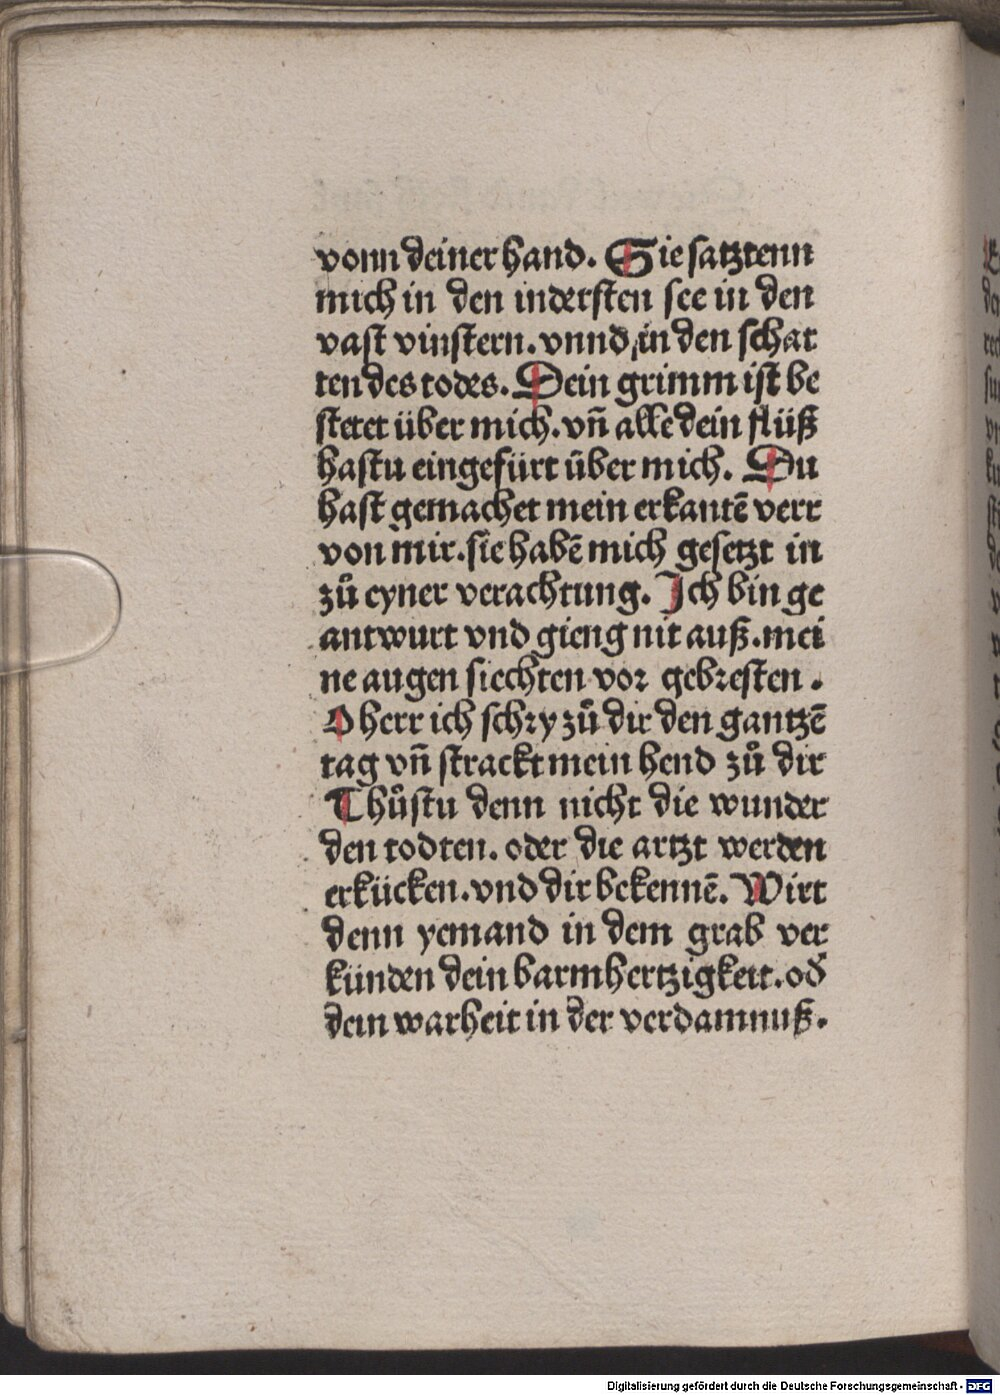 vonn deiner hand. Sie satztenn
mich in den inderſten ſee in den
vaſt vinſtern. vnnd in den ſchat
ten des todes. Dein grimm iſt be
ſtetet über mich. vñ alle dein flüß
haſtu eingefürt über mich. Du
haſt gemachet mein erkantē verr
von mir. ſie habē mich geſetzt in
zů eyner verachtung. Ich bin ge
antwurt vnd gieng nit auß. mei
ne augen ſiechten vor gebreſten.
O herr ich ſchry zů dir den gantzē
tag vñ ſtrackt mein hend zů dir
Thůſtu denn nicht die wunder
den todten. oder die artzt werden
erkücken. vnd dir bekennē. Wirt
denn yemand in dem grab ver
künden dein barmhertzigkeit. od̓
dein warheit in der verdamnuß.
Digitalisierung gefördert durch die Deutsche Forschungsgemeinschaft - DFG